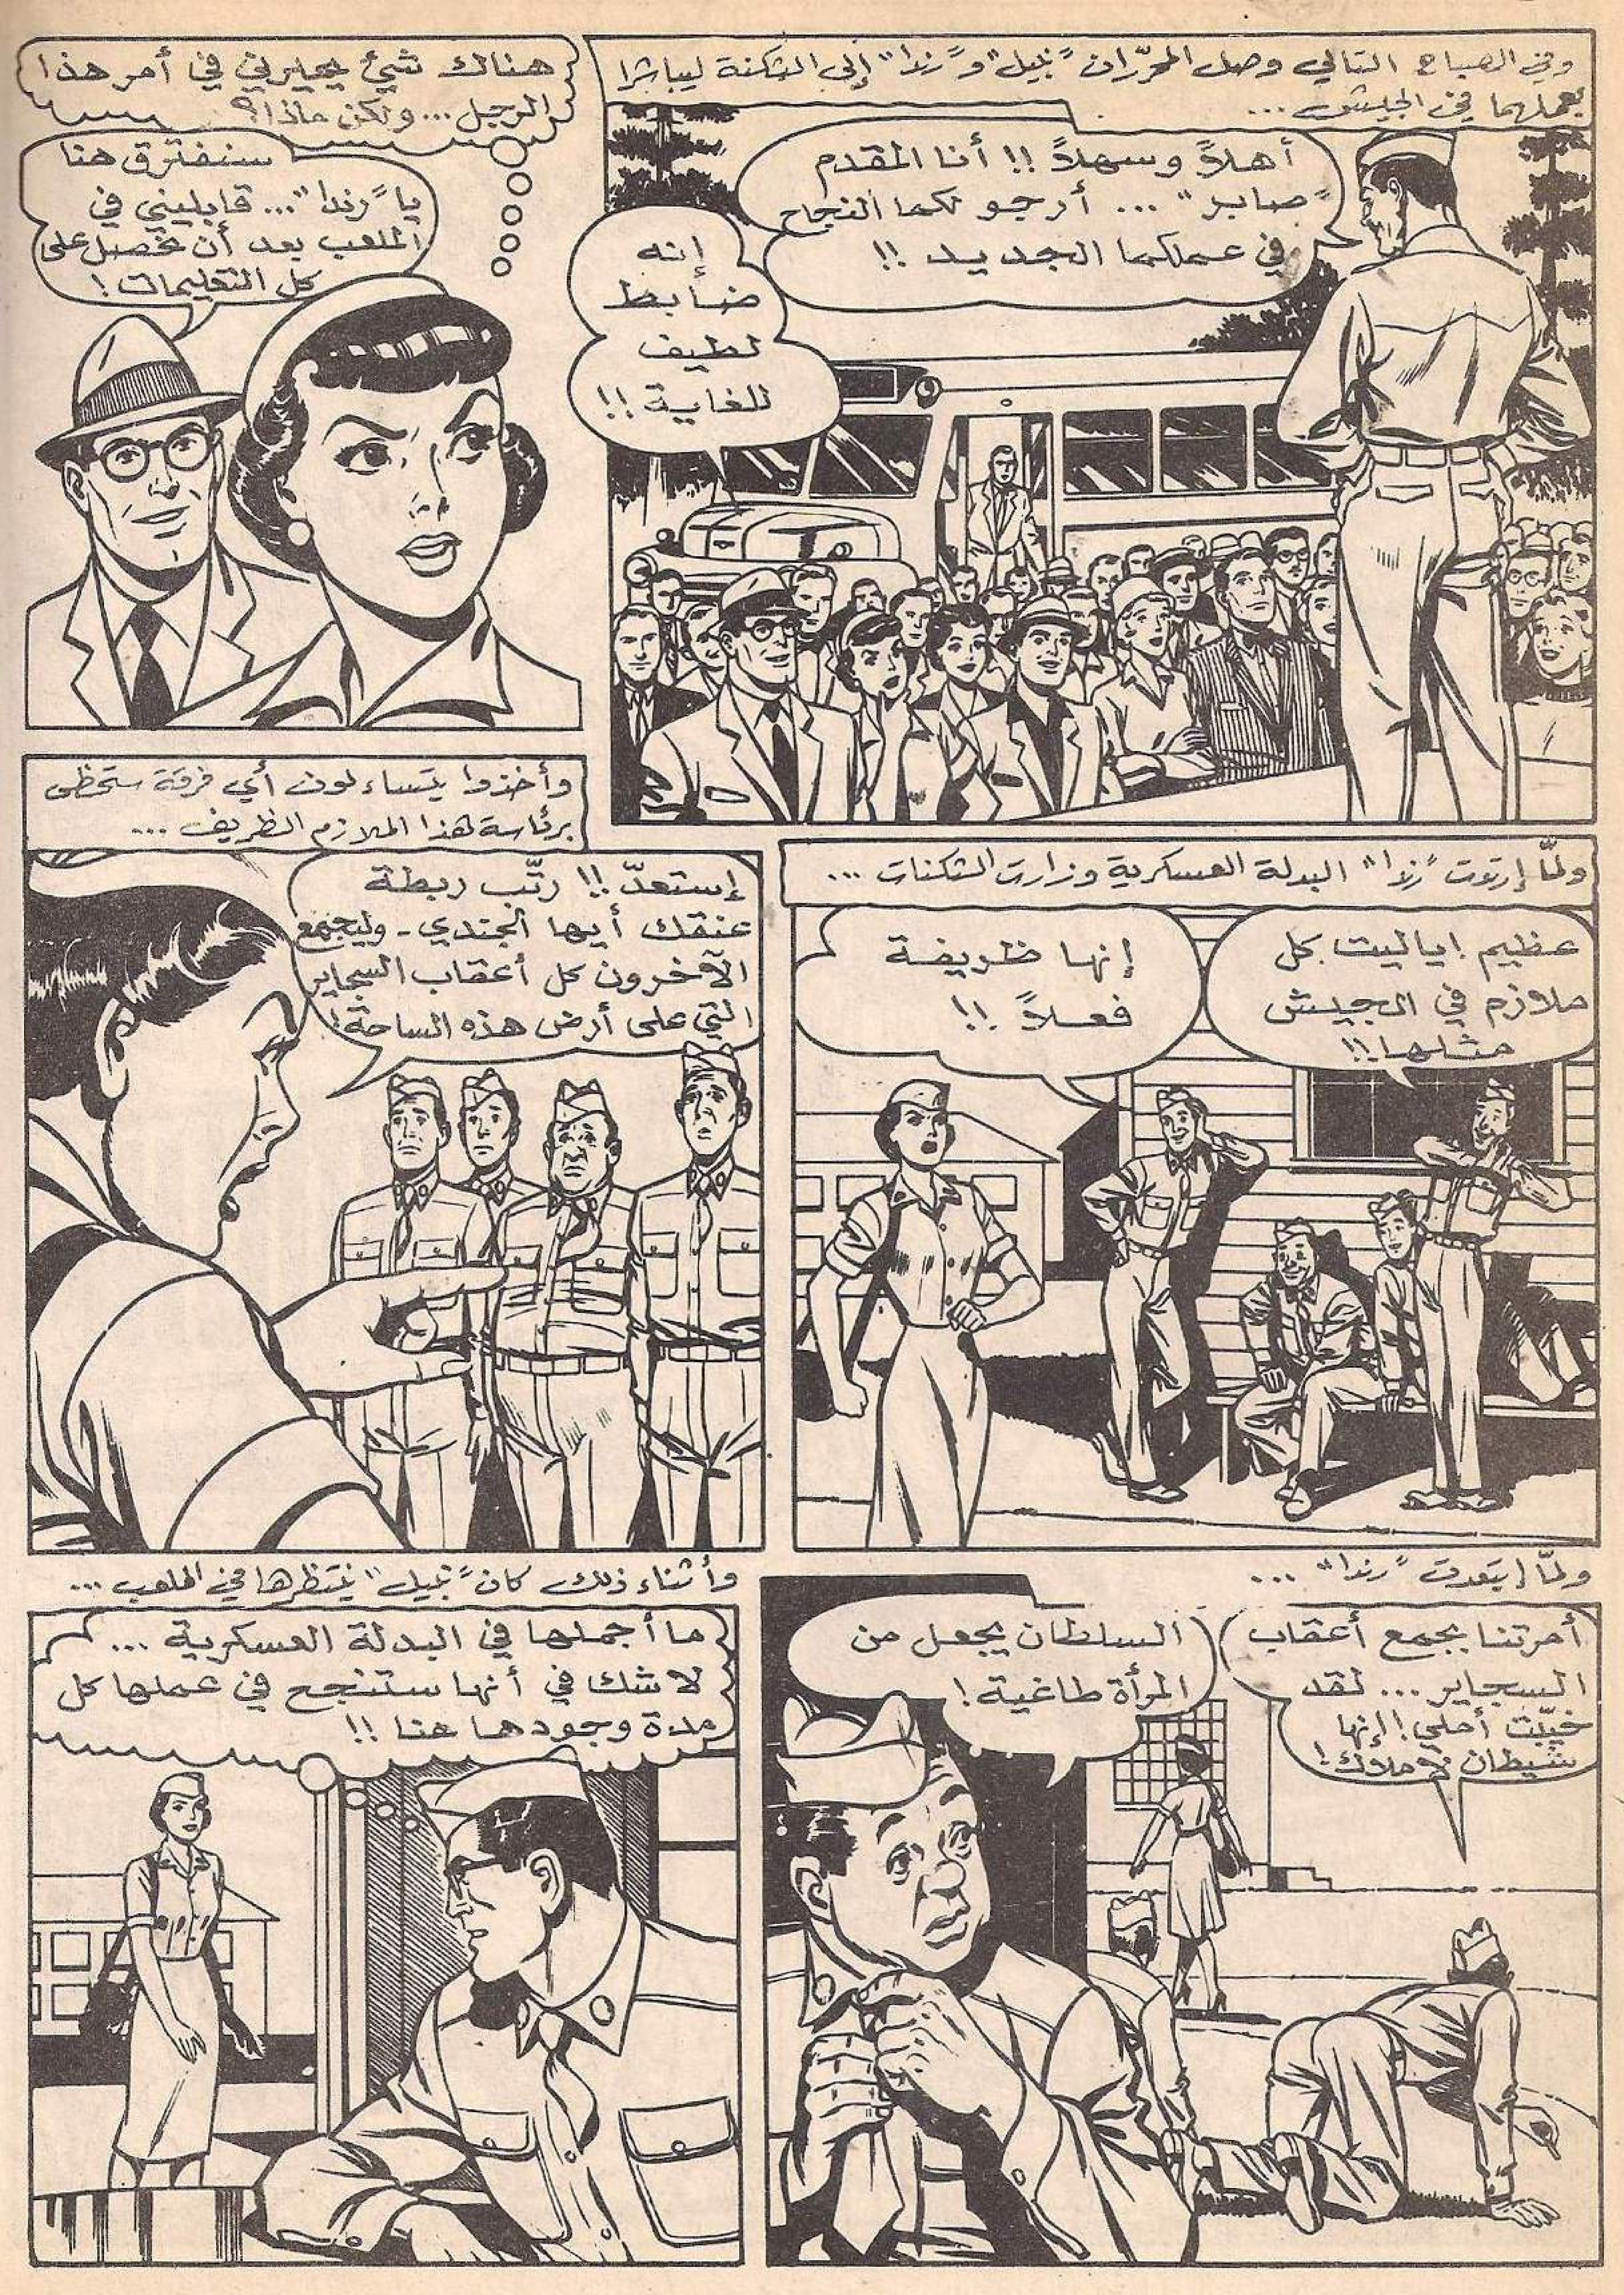 وفي الصباح التالي وصل المحرّران "نبيل" و"رندا" إلى الثكنة ليباشرا
بعملهما في الجيش ...
أهلاً وسهلاً !! أنا المقدم
"صابر" ... أرجو لكما النجاح
في عملكما الجديد !!
إنه
ضابط
لطيف
للغاية !!
هناك شيئ يحيرني في أمر هذا
الرجل ... ولكن ماذا ؟
سنفترق هنا
يا "رندا" ... قابليني في
الملعب بعد أن تحصل على
كل التعليمات !
ولمّا إرتدت "رندا" البدلة العسكرية وزارت الثكنات ...
عظيم ! ياليت كل
ملازم في الجيش
مثلها !!
إنها ظريفة
فعلاً !!
وأخذوا يتساءلون أي فرقة ستحظى
برئاسة هذا الملازم الظريف ...
إستعدّ !! رتّب ربطة
عنقك أيها الجندي - وليجمع
الآخرون كل أعقاب السجاير
التي على أرض هذه الساحة !
ولمّا إبتعدت "رندا" ...
أمرتنا بجمع أعقاب
السجاير ... لقد
خيّبت أملي ! إنها
شيطان لا ملاك !
السلطان يجعل من
المرأة طاغية !
وأثناء ذلك كان "نبيل" ينتظرها في الملعب ...
ما أجملها في البدلة العسكرية ...
لا شك في أنها ستنجح في عملها كل
مدة وجودها هنا !!